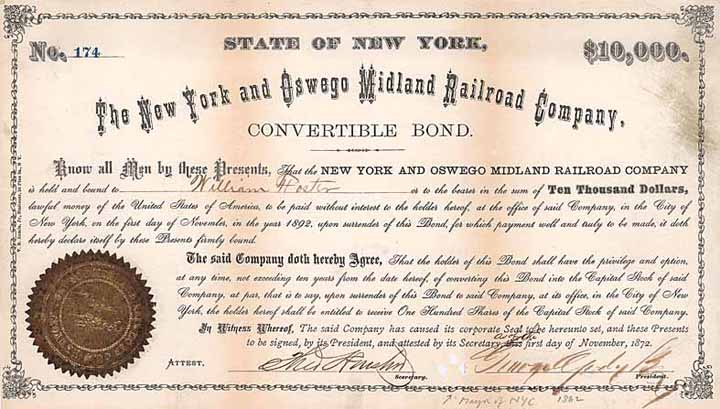 No. 174
STATE OF NEW YORK,
$10,000.
The New York and Oswego Midland Railroad Company,
CONVERTIBLE BOND.
Know all Men by these Presents, That the NEW YORK AND OSWEGO MIDLAND RAILROAD COMPANY
is held and bound to William Foster or to the bearer in the sum of Ten Thousand Dollars,
lawful money of the United States of America, to be paid without interest to the holder hereof, at the office of said Company, in the City of
New York, on the first day of November, in the year 1892, upon surrender of this Bond, for which payment well and truly to be made, it doth
hereby declare itself by these Presents firmly bound.
The said Company doth hereby Agree, That the holder of this Bond shall have the privilege and option,
at any time, not exceeding ten years from the date hereof, of converting this Bond into the Capital Stock of said
Company, at par, that is to say, upon surrender of this Bond to said Company, at its office, in the City of New
York, the holder hereof shall be entitled to receive One Hundred Shares of the Capital Stock of said Company.
In Witness Whereof, The said Company has caused its corporate Seal to be hereunto set, and these Presents
to be signed, by its President, and attested by its Secretary, this first day of November, 1872.
ATTEST.
Secretary.
President.
Mayor of NYC 1862